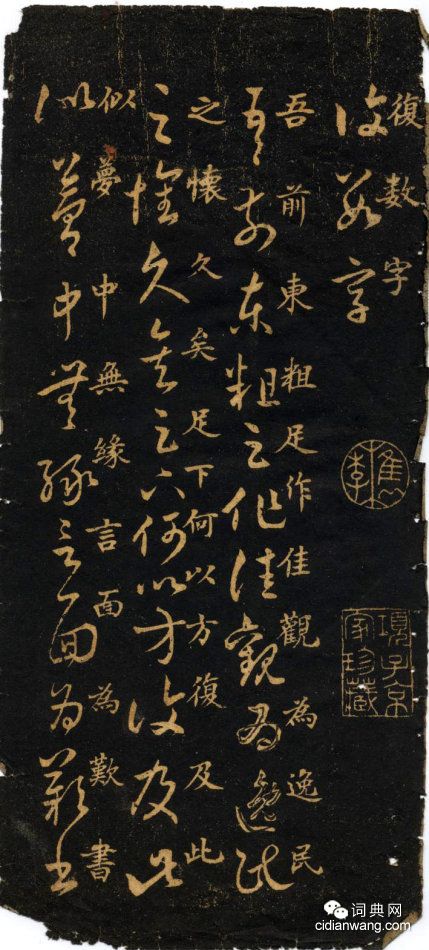 復数字
復數字
吾前東粗足作佳觀為逸民
吾前東粗足作佳觀為逸民
之懐久矣足下何以方復及此
之懐久矣足下何以方復及此
似夢中無緣言面為歎書
似夢中無緣言面為歎書
檇李
項子京
家珍藏
词典网
cidianwang.com